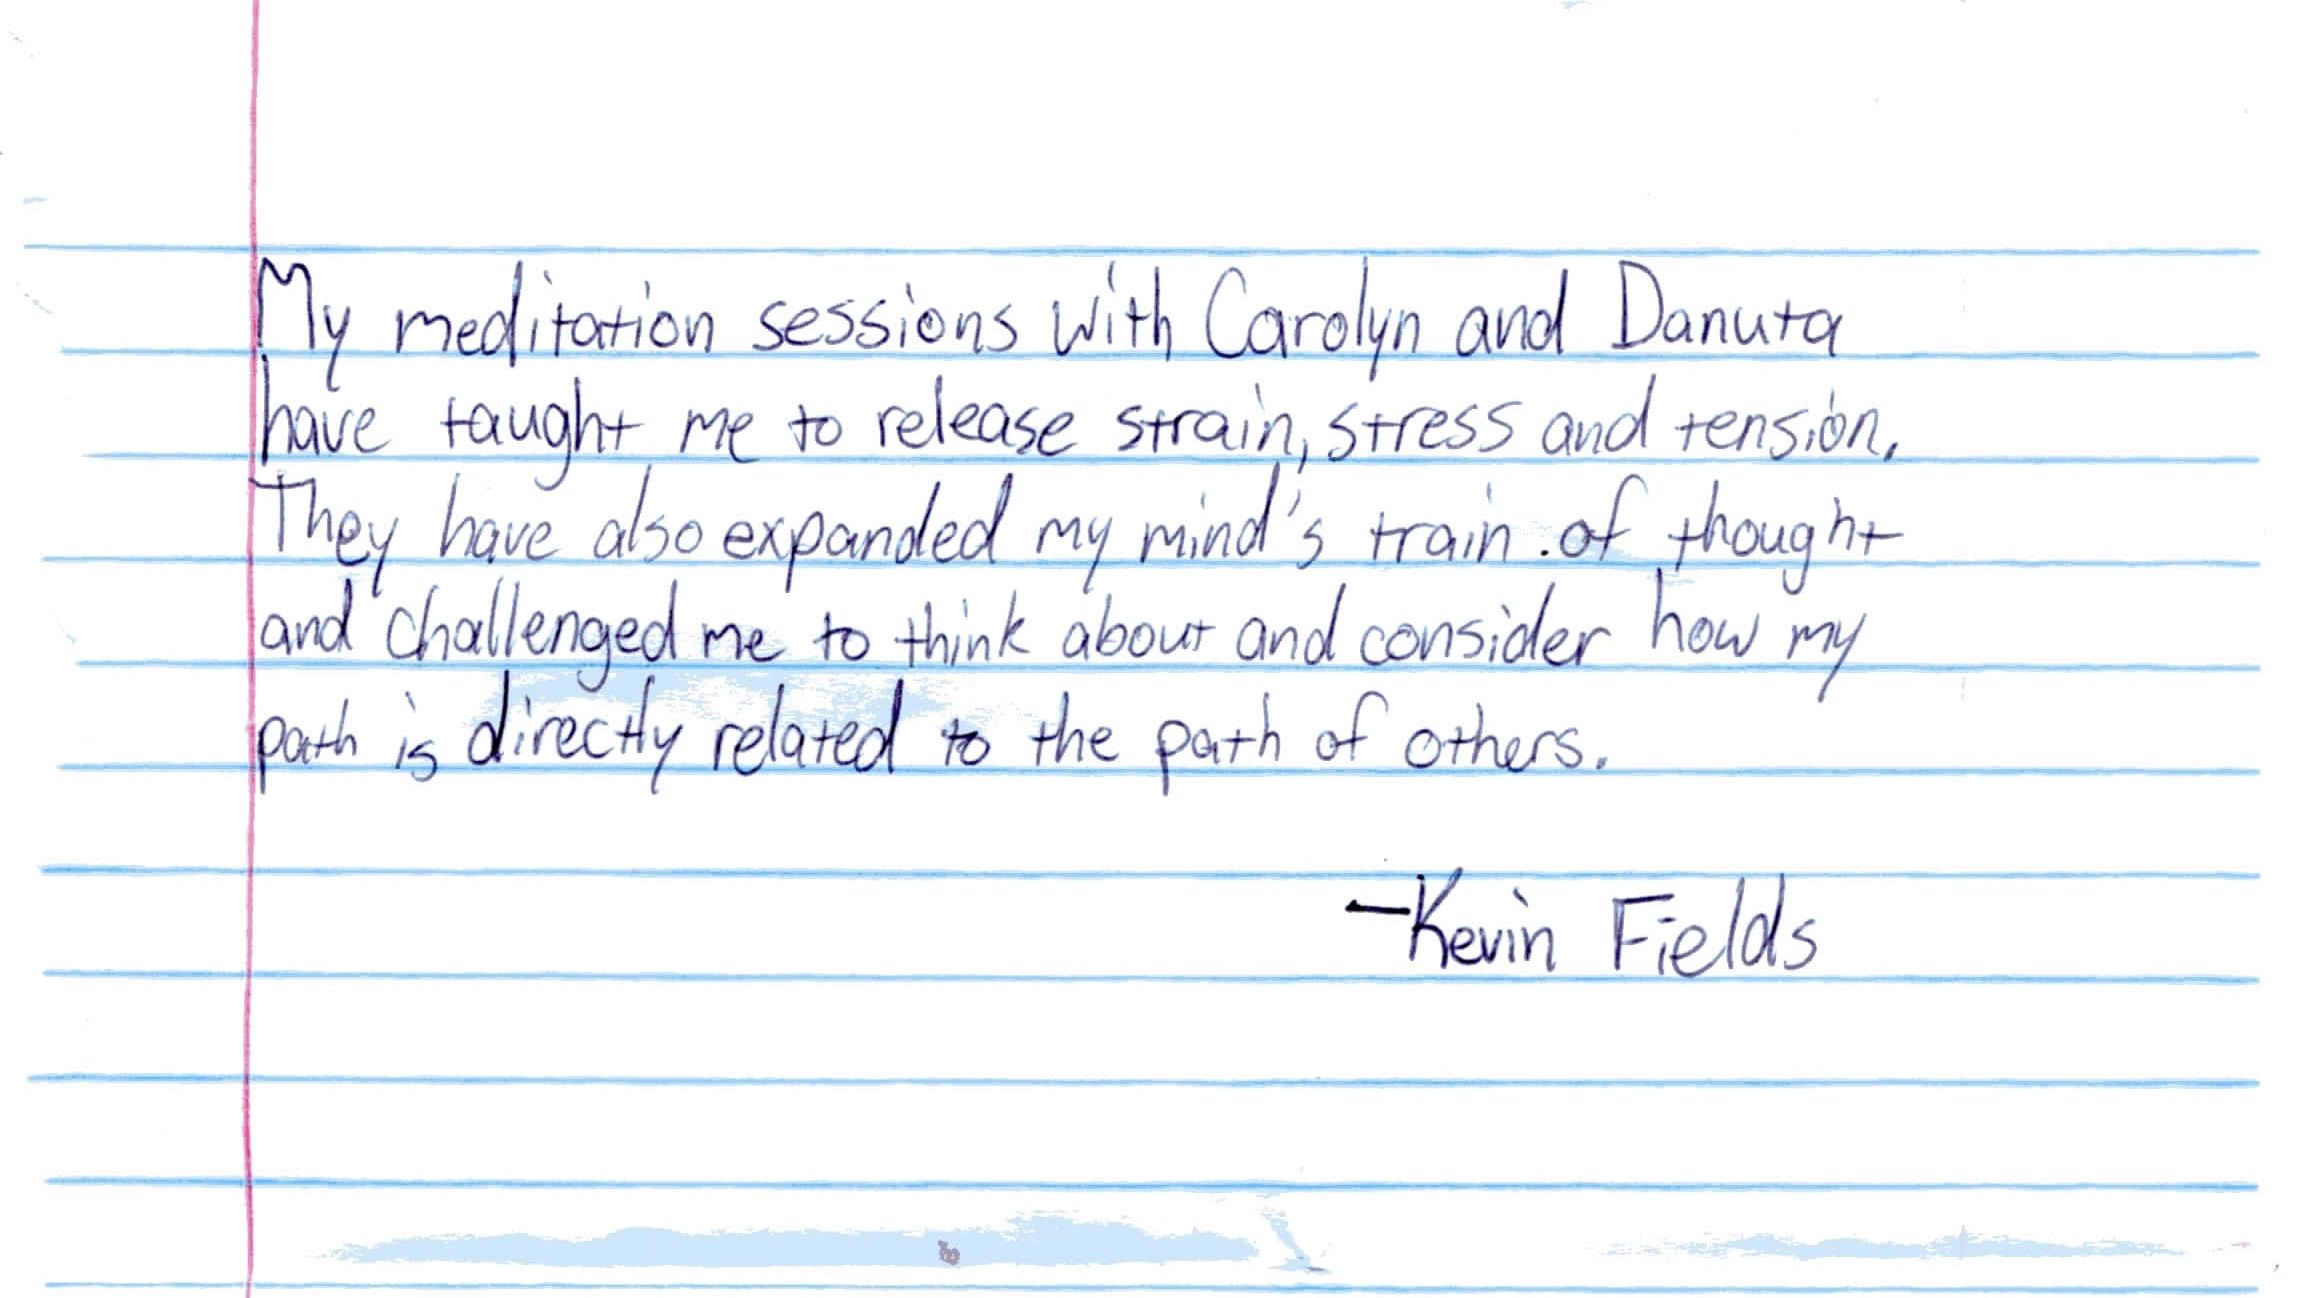 My meditation sessions with Carolyn and Danuta
have taught me to release strain, stress and tension.
They have also expanded my mind's train of thought
and challenged me to think about and consider how my
path is directly related to the path of others.
-Kevin Fields